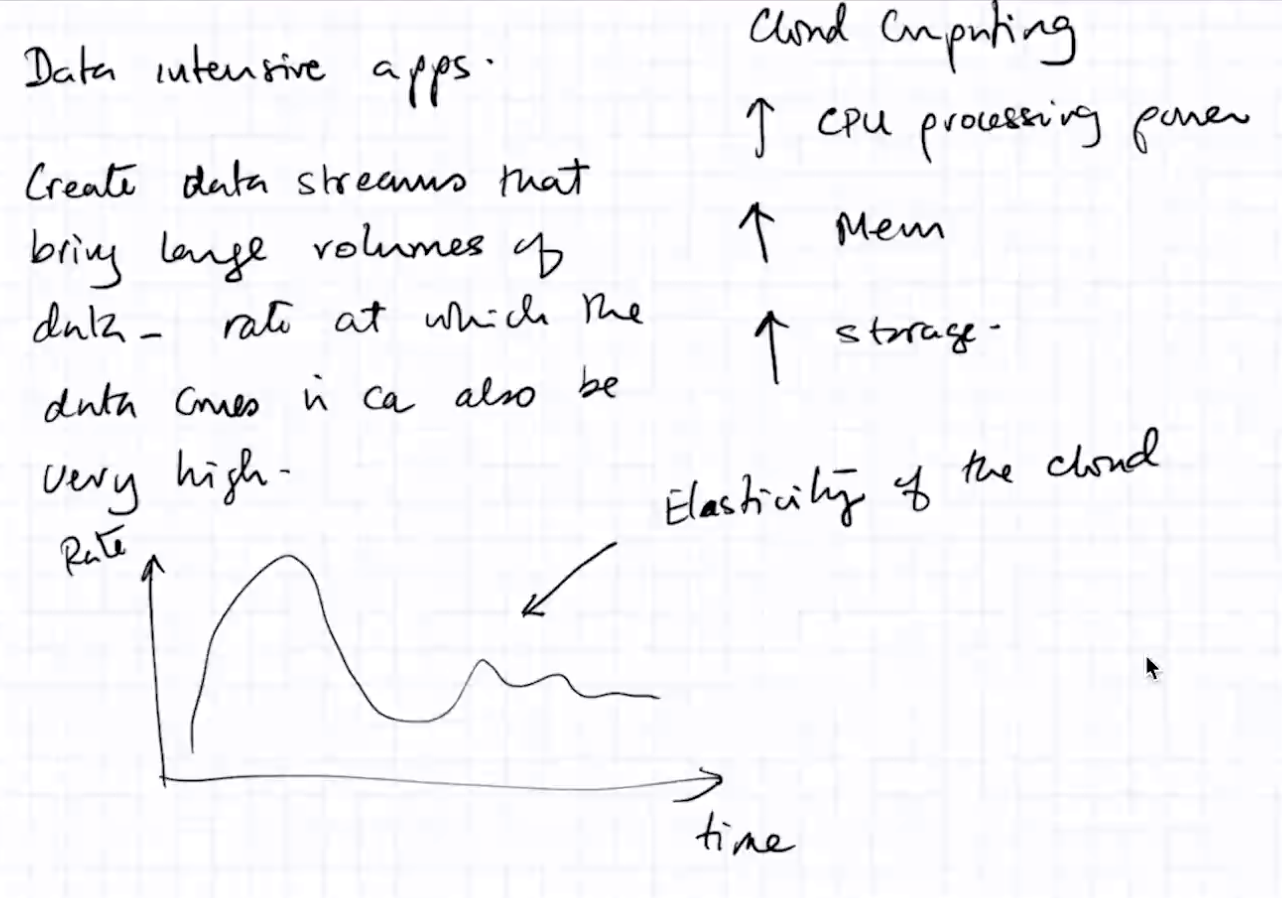 Data intensive apps.
Create data streams that
bring large volumes of
data - rate at which the
data comes in ca also be
very high -
Rate
time
Cloud Computing
↑ CPU processing power
↑ Mem
↑ storage -
Elasticity of the cloud